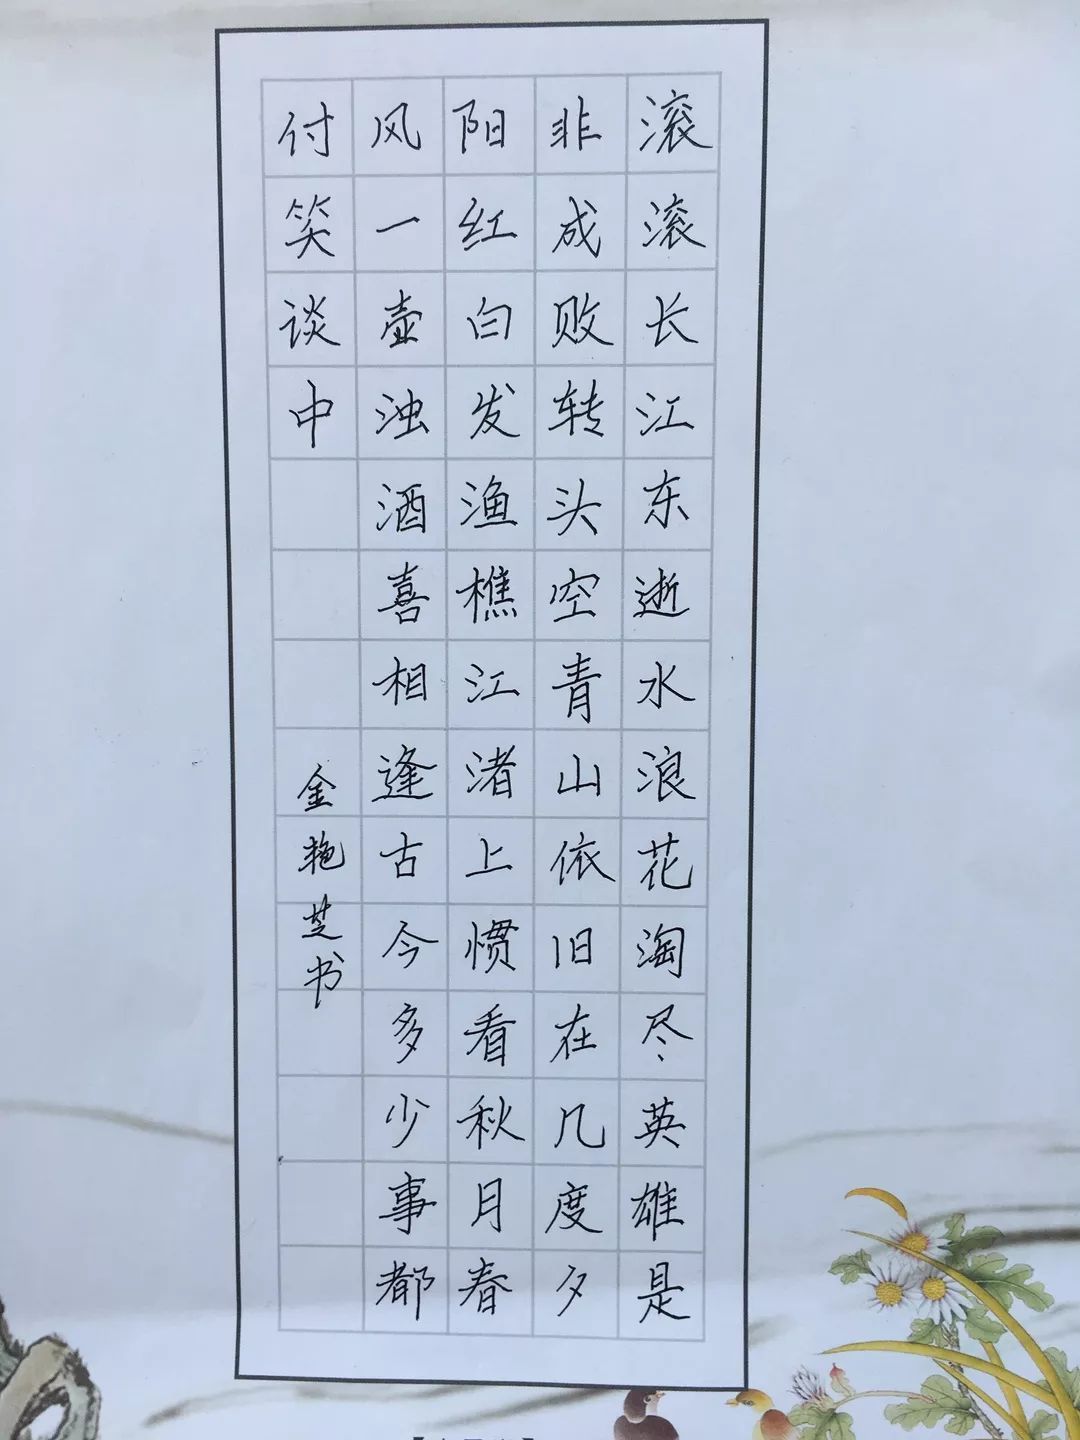 滚滚长江东逝水浪花淘尽英雄是
非成败转头空青山依旧在几度夕
阳红白发渔樵江渚上惯看秋月春
风一壶浊酒喜相逢古今多少事都
付笑谈中
金艳芝书